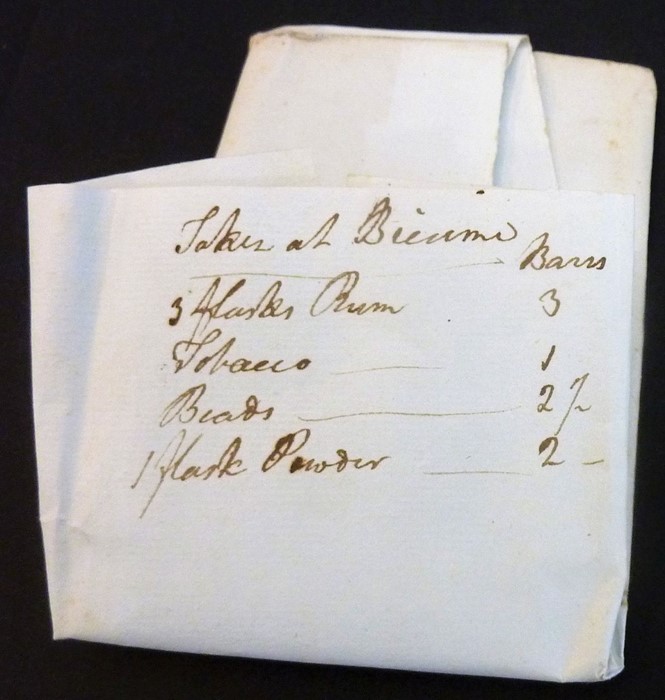 Taken at Bicume
Barrs
3 flasks Rum 3
Tobacco 1
Beads 2 /-
1 flask Powder 2 -